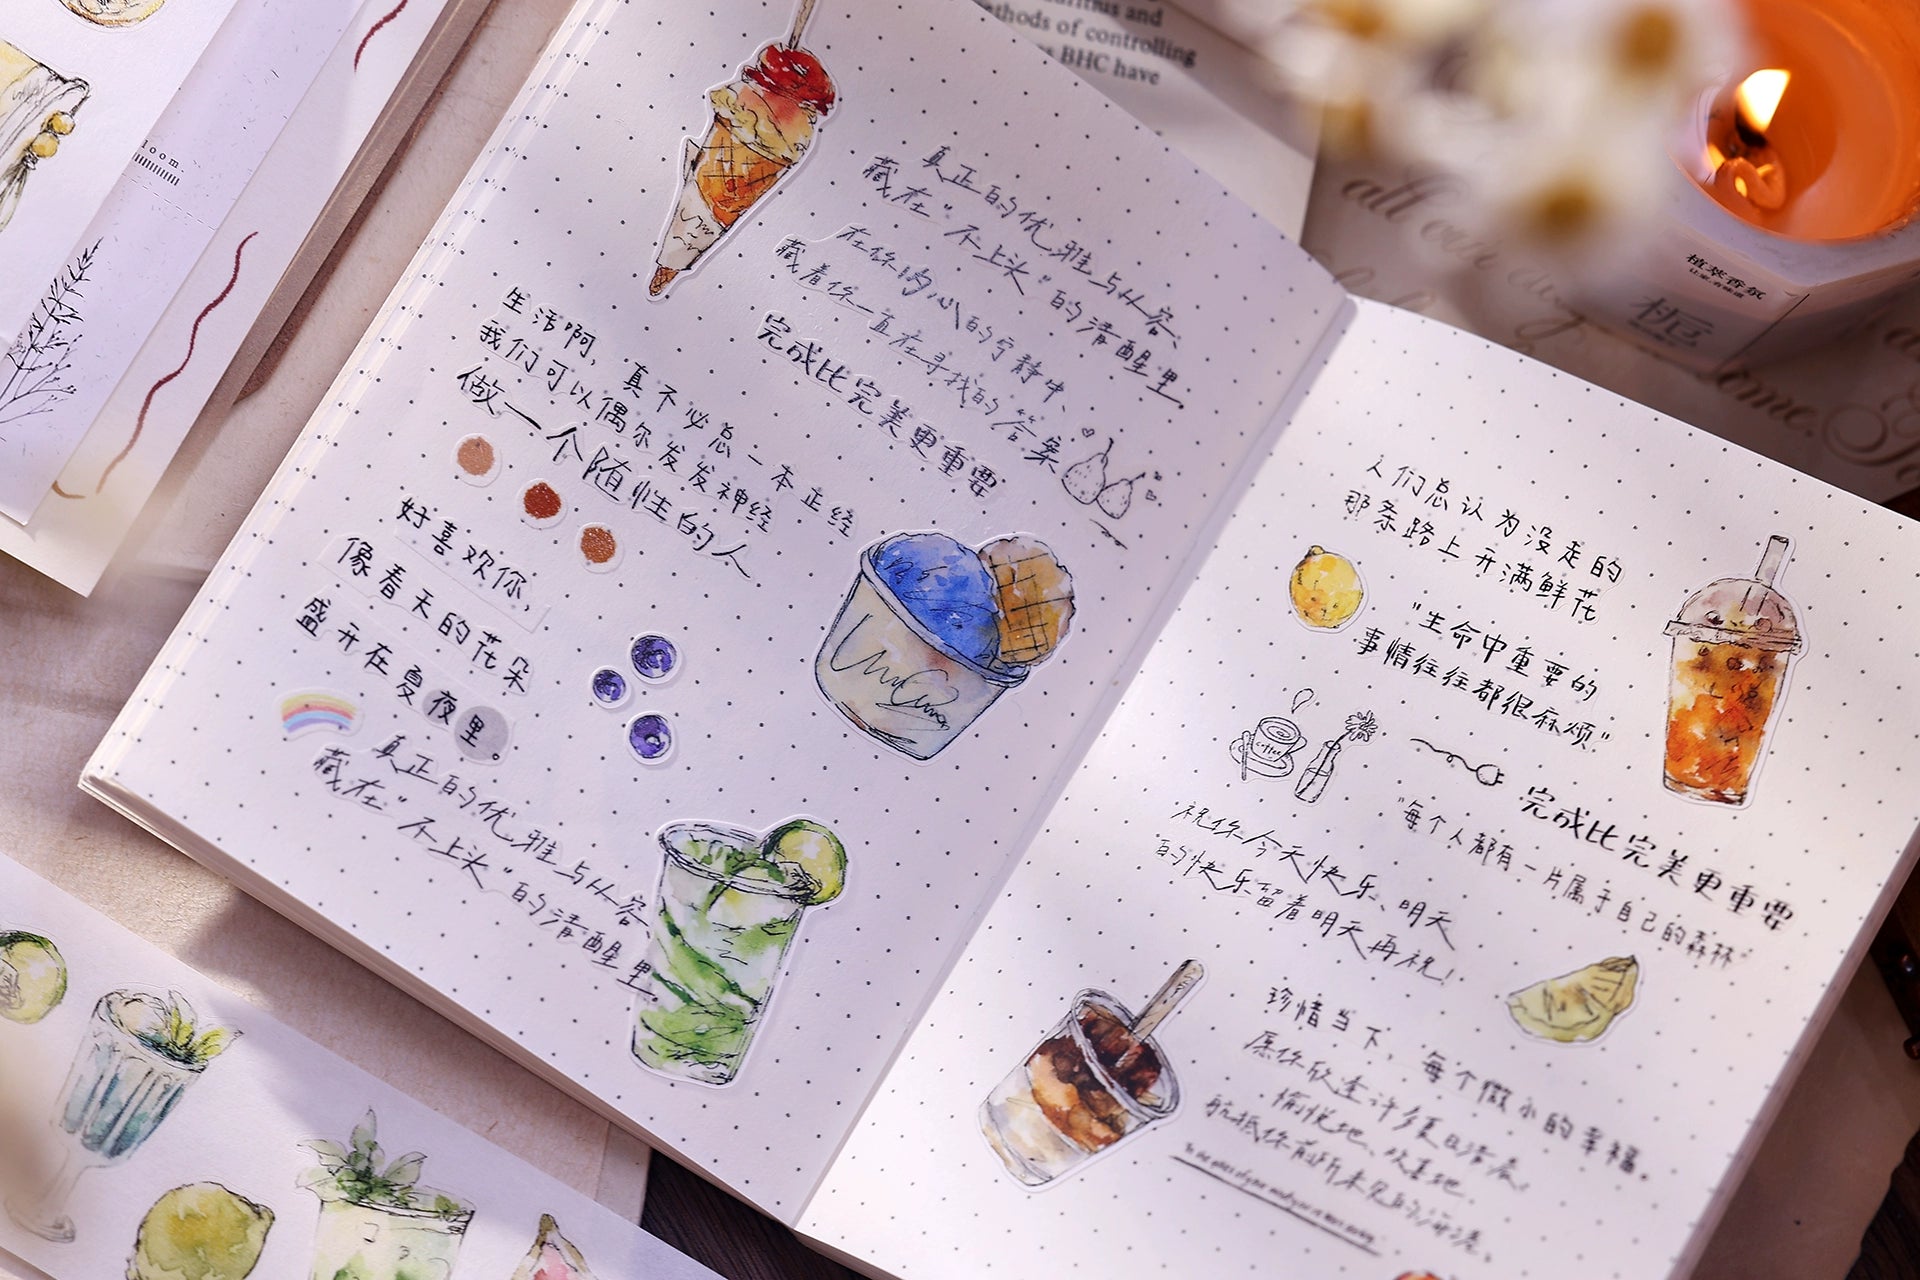 ethods of controlling
BHC have
真正的优雅与从容、
藏在“不上头”的清醒里。
在你内心的宁静中、
藏着你一直在寻找的答案
完成比完美更重要
生活啊，真不必总一本正经
我们可以偶尔发发神经
做一个随性的人
好喜欢你，
像春天的花朵
盛开在夏夜里。
真正的优雅与从容、
藏在“不上头”的清醒里。
人们总认为没走的
那条路上开满鲜花
“生命中重要的
事情往往都很麻烦”
coffee
完成比完美更重要
“每个人都有一片属于自己的森林”
祝你今天快乐、明天
的快乐留着明天再祝！
珍惜当下，每个微小的幸福。
愿你欣逢许多夏日清晨，
愉悦地、欢喜地，
航抵你前所未见的海港。
植萃香氛
loom.
all our
time.